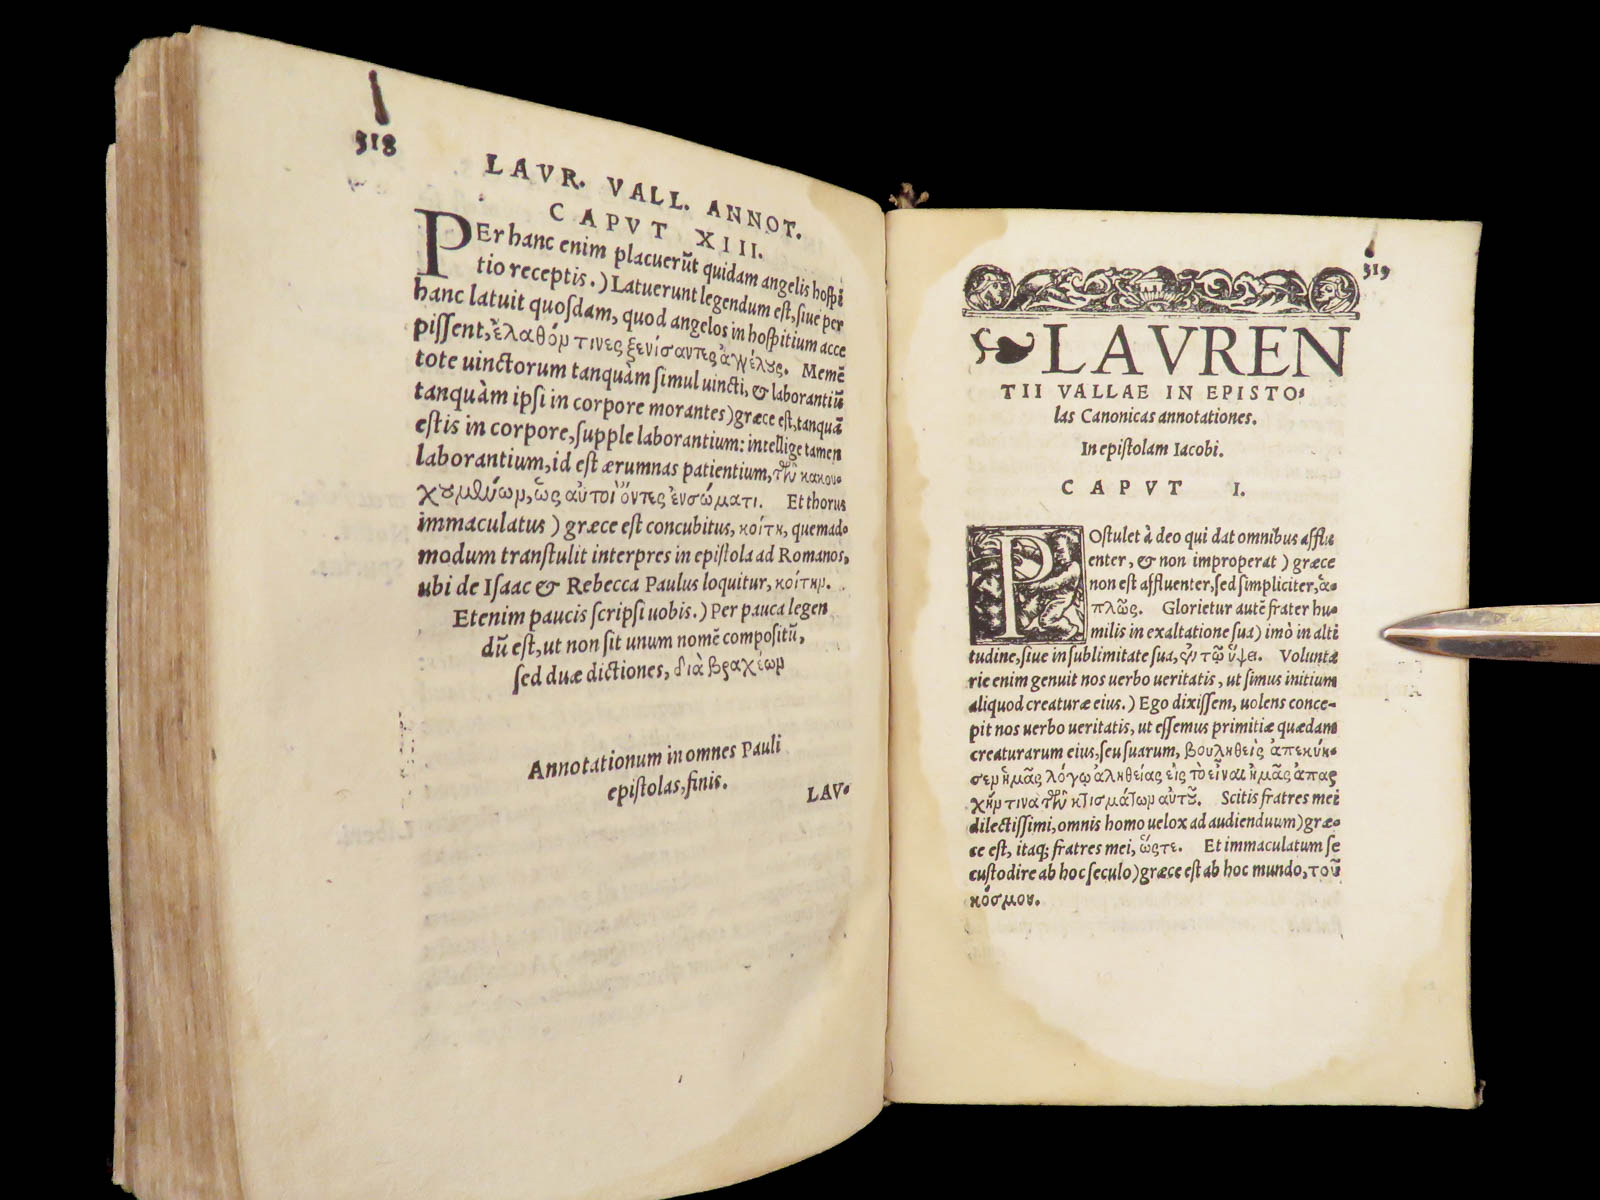 318
LAVR. VALL. ANNOT.
CAPVT XIII.
PEr hanc enim placuerũt quidam angelis hoſpi
tio receptis.) Latuerunt legendum eſt, ſiue per
hanc latuit quoſdam, quod angelos in hoſpitium acce
piſſent, ἔλαθόν τινες ξενίσαντες ἀγγέλους. Memẽ
tote uinctorum tanquàm ſimul uincti, & laborantiũ
tanquàm ipſi in corpore morantes) græce eſt, tanquã
eſtis in corpore, ſupple laborantium: intellige tamen
laborantium, id eſt ærumnas patientium, τῶν κακου-
χουμένων, ὡς αὐτοὶ ὄντες ἐν σώματι. Et thorus
immaculatus) græce eſt concubitus, κοίτη, quemad-
modum tranſtulit interpres in epiſtola ad Romanos,
ubi de Iſaac & Rebecca Paulus loquitur, κοίτην.
Etenim paucis ſcripſi uobis.) Per pauca legen
dũ eſt, ut non ſit unum nomẽ compoſitũ,
ſed duæ dictiones, διὰ βραχέων
Annotationum in omnes Pauli
epiſtolas, finis.
LAV-
319
LAVREN
TII VALLAE IN EPISTO-
las Canonicas annotationes.
In epiſtolam Iacobi.
CAPVT I.
POſtulet à deo qui dat omnibus afflu
enter, & non improperat) græce
non eſt affluenter, ſed ſimpliciter, ἁ-
πλῶς. Glorietur autẽ frater hu-
milis in exaltatione ſua) imò in alti
tudine, ſiue in ſublimitate ſua, ἐν τῷ ὕψει. Voluntæ
rie enim genuit nos uerbo ueritatis, ut ſimus initium
aliquod creaturæ eius.) Ego dixiſſem, uolens conce-
pit nos uerbo ueritatis, ut eſſemus primitiæ quædam
creaturarum eius, ſeu ſuarum, βουληθεὶς ἀπεκύη-
σεν ἡμᾶς λόγῳ ἀληθείας εἰς τὸ εἶναι ἡμᾶς ἀπαρ
χήν τινα τῶν κτισμάτων αὐτοῦ. Scitis fratres mei
dilectiſſimi, omnis homo uelox ad audiendum) græ-
ce eſt, itaq; fratres mei, ὥςτε. Et immaculatum ſe
cuſtodire ab hoc ſeculo) græce eſt ab hoc mundo, τοῦ
κόσμου.